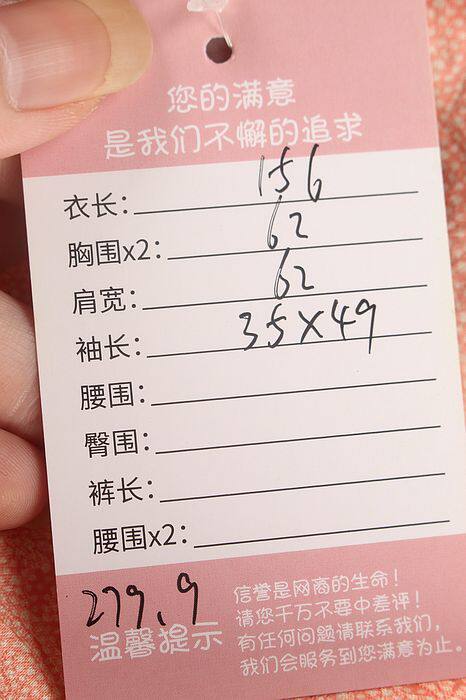 您的满意
是我们不懈的追求
衣长: 156
胸围x2: 62
肩宽: 62
袖长: 35X49
腰围:
臀围:
裤长:
腰围x2:
279.9
温馨提示
信誉是网商的生命!
请您千万不要中差评!
有任何问题请联系我们,
我们会服务到您满意为止。